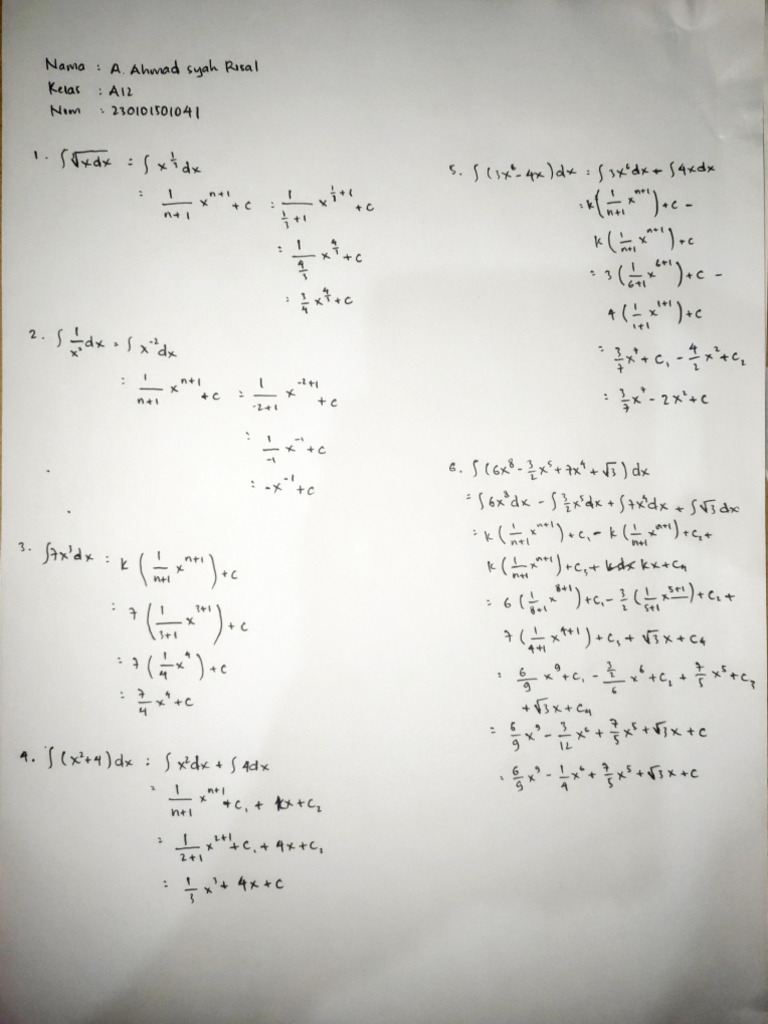 Nama : A. Ahmad Syah Risal
Kelas : A12
Nim : 230101501041
1. ∫√x dx = ∫ x^(1/3) dx
= 1/(n+1) x^(n+1) + c = 1/(1/3+1) x^(1/3+1) + c
= 1/(4/3) x^(4/3) + c
= 3/4 x^(4/3) + c
2. ∫ 1/x² dx = ∫ x^(-2) dx
= 1/(n+1) x^(n+1) + c = 1/(-2+1) x^(-2+1) + c
= 1/-1 x^(-1) + c
= -x^(-1) + c
3. ∫7x³ dx = k (1/(n+1) x^(n+1)) + c
= 7 (1/(3+1) x^(3+1)) + c
= 7 (1/4 x⁴) + c
= 7/4 x⁴ + c
4. ∫(x²+4) dx = ∫x² dx + ∫4dx
= 1/(n+1) x^(n+1) + c₁ + kx + c₂
= 1/(2+1) x^(2+1) + c₁ + 4x + c₂
= 1/3 x³ + 4x + c
5. ∫(3x⁶ - 4x) dx = ∫3x⁶ dx + ∫4x dx
= k (1/(n+1) x^(n+1)) + c -
k (1/(n+1) x^(n+1)) + c
= 3 (1/(6+1) x^(6+1)) + c -
4 (1/(1+1) x^(1+1)) + c
= 3/7 x⁷ + c₁ - 4/2 x² + c₂
= 3/7 x⁷ - 2x² + c
6. ∫(6x⁸ - 3/2 x⁵ + 7x⁴ + √3) dx
= ∫6x⁸ dx - ∫3/2 x⁵ dx + ∫7x⁴ dx + ∫√3 dx
= k (1/(n+1) x^(n+1)) + c₁ - k (1/(n+1) x^(n+1)) + c₂ +
k (1/(n+1) x^(n+1)) + c₃ + kx + c₄
= 6 (1/(8+1) x^(8+1)) + c₁ - 3/2 (1/(5+1) x^(5+1)) + c₂ +
7 (1/(4+1) x^(4+1)) + c₃ + √3x + c₄
= 6/9 x⁹ + c₁ - (3/2)/6 x⁶ + c₂ + 7/5 x⁵ + c₃
+ √3x + c₄
= 6/9 x⁹ - 3/12 x⁶ + 7/5 x⁵ + √3x + c
= 6/9 x⁹ - 1/4 x⁶ + 7/5 x⁵ + √3x + c